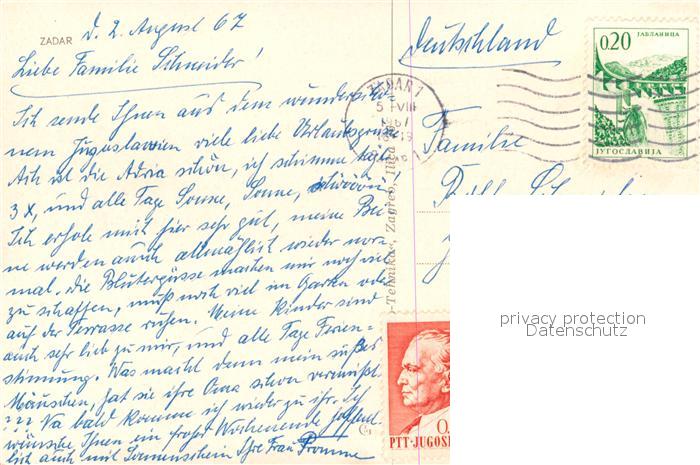 ZADAR
d. 2. August 67
Liebe Familie Schneider!
Ich sende Ihnen aus dem wunderschö-
nem Jugoslawien viele liebe Urlaubsgrüße
Ach ist die Adria schön, ich schwimme tägl.
3x, und alle Tage Sonne, Sonne, schööön!
Ich erhole mich hier sehr gut, meine Bei-
ne werden auch allmählich wieder nor-
mal. die Blutergüsse machen mir noch viel
zu schaffen, muß noch viel im Garten oder
auf der Terrasse ruhen. Meine Kinder sind
auch sehr lieb zu mir, und alle Tage Ferien-
stimmung. Was macht denn mein süßes
Mäuschen, hat sie ihre Oma schon vermißt
??? Na bald komme ich wieder zu ihr. Ich
wünsche Ihnen ein frohes Wochenende hoffent-
lich auch mit Sonnenschein Ihre Frau
"Tehnika", Zagreb, Ilica
Deutschland
Familie
ZADAR 1
0.20
ЈАБЛАНИЦА
ЈУГОСЛАВИЈА
PTT-JUGOS
privacy protection
Datenschutz